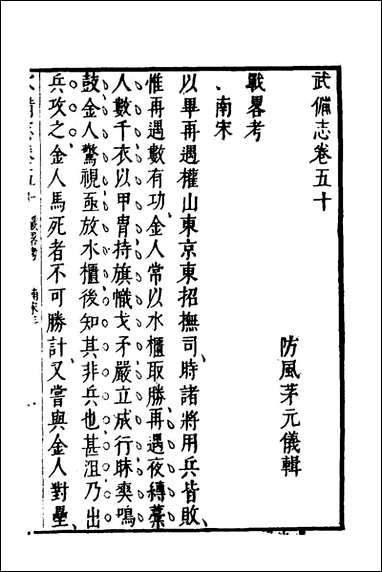 武備志卷五十
防風茅元儀輯
戰畧考
南宋
以畢再遇權山東京東招撫司時諸將用兵皆敗
惟再遇數有功金人常以水櫃取勝再遇夜縛藁
人數千衣以甲胄持旗幟戈矛嚴立成行昧爽鳴
鼓金人驚視亟放水櫃後知其非兵也甚沮乃出
兵攻之金人馬死者不可勝計又嘗與金人對壘